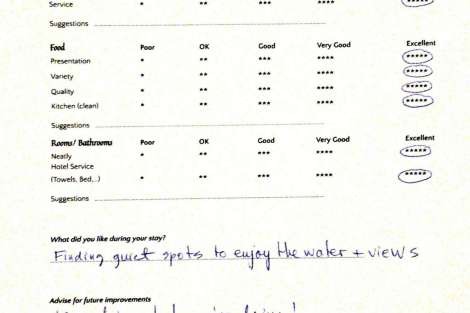 Service * ** *** **** *****
Suggestions
Food Poor OK Good Very Good Excellent
Presentation * ** *** **** *****
Variety * ** *** **** *****
Quality * ** *** **** *****
Kitchen (clean) * ** *** **** *****
Suggestions
Rooms/ Bathrooms Poor OK Good Very Good Excellent
Neatly * ** *** **** *****
Hotel Service
(Towels, Bed,..) * ** *** **** *****
Suggestions
What did you like during your stay?
Finding quiet spots to enjoy the water + views
Advise for future improvements